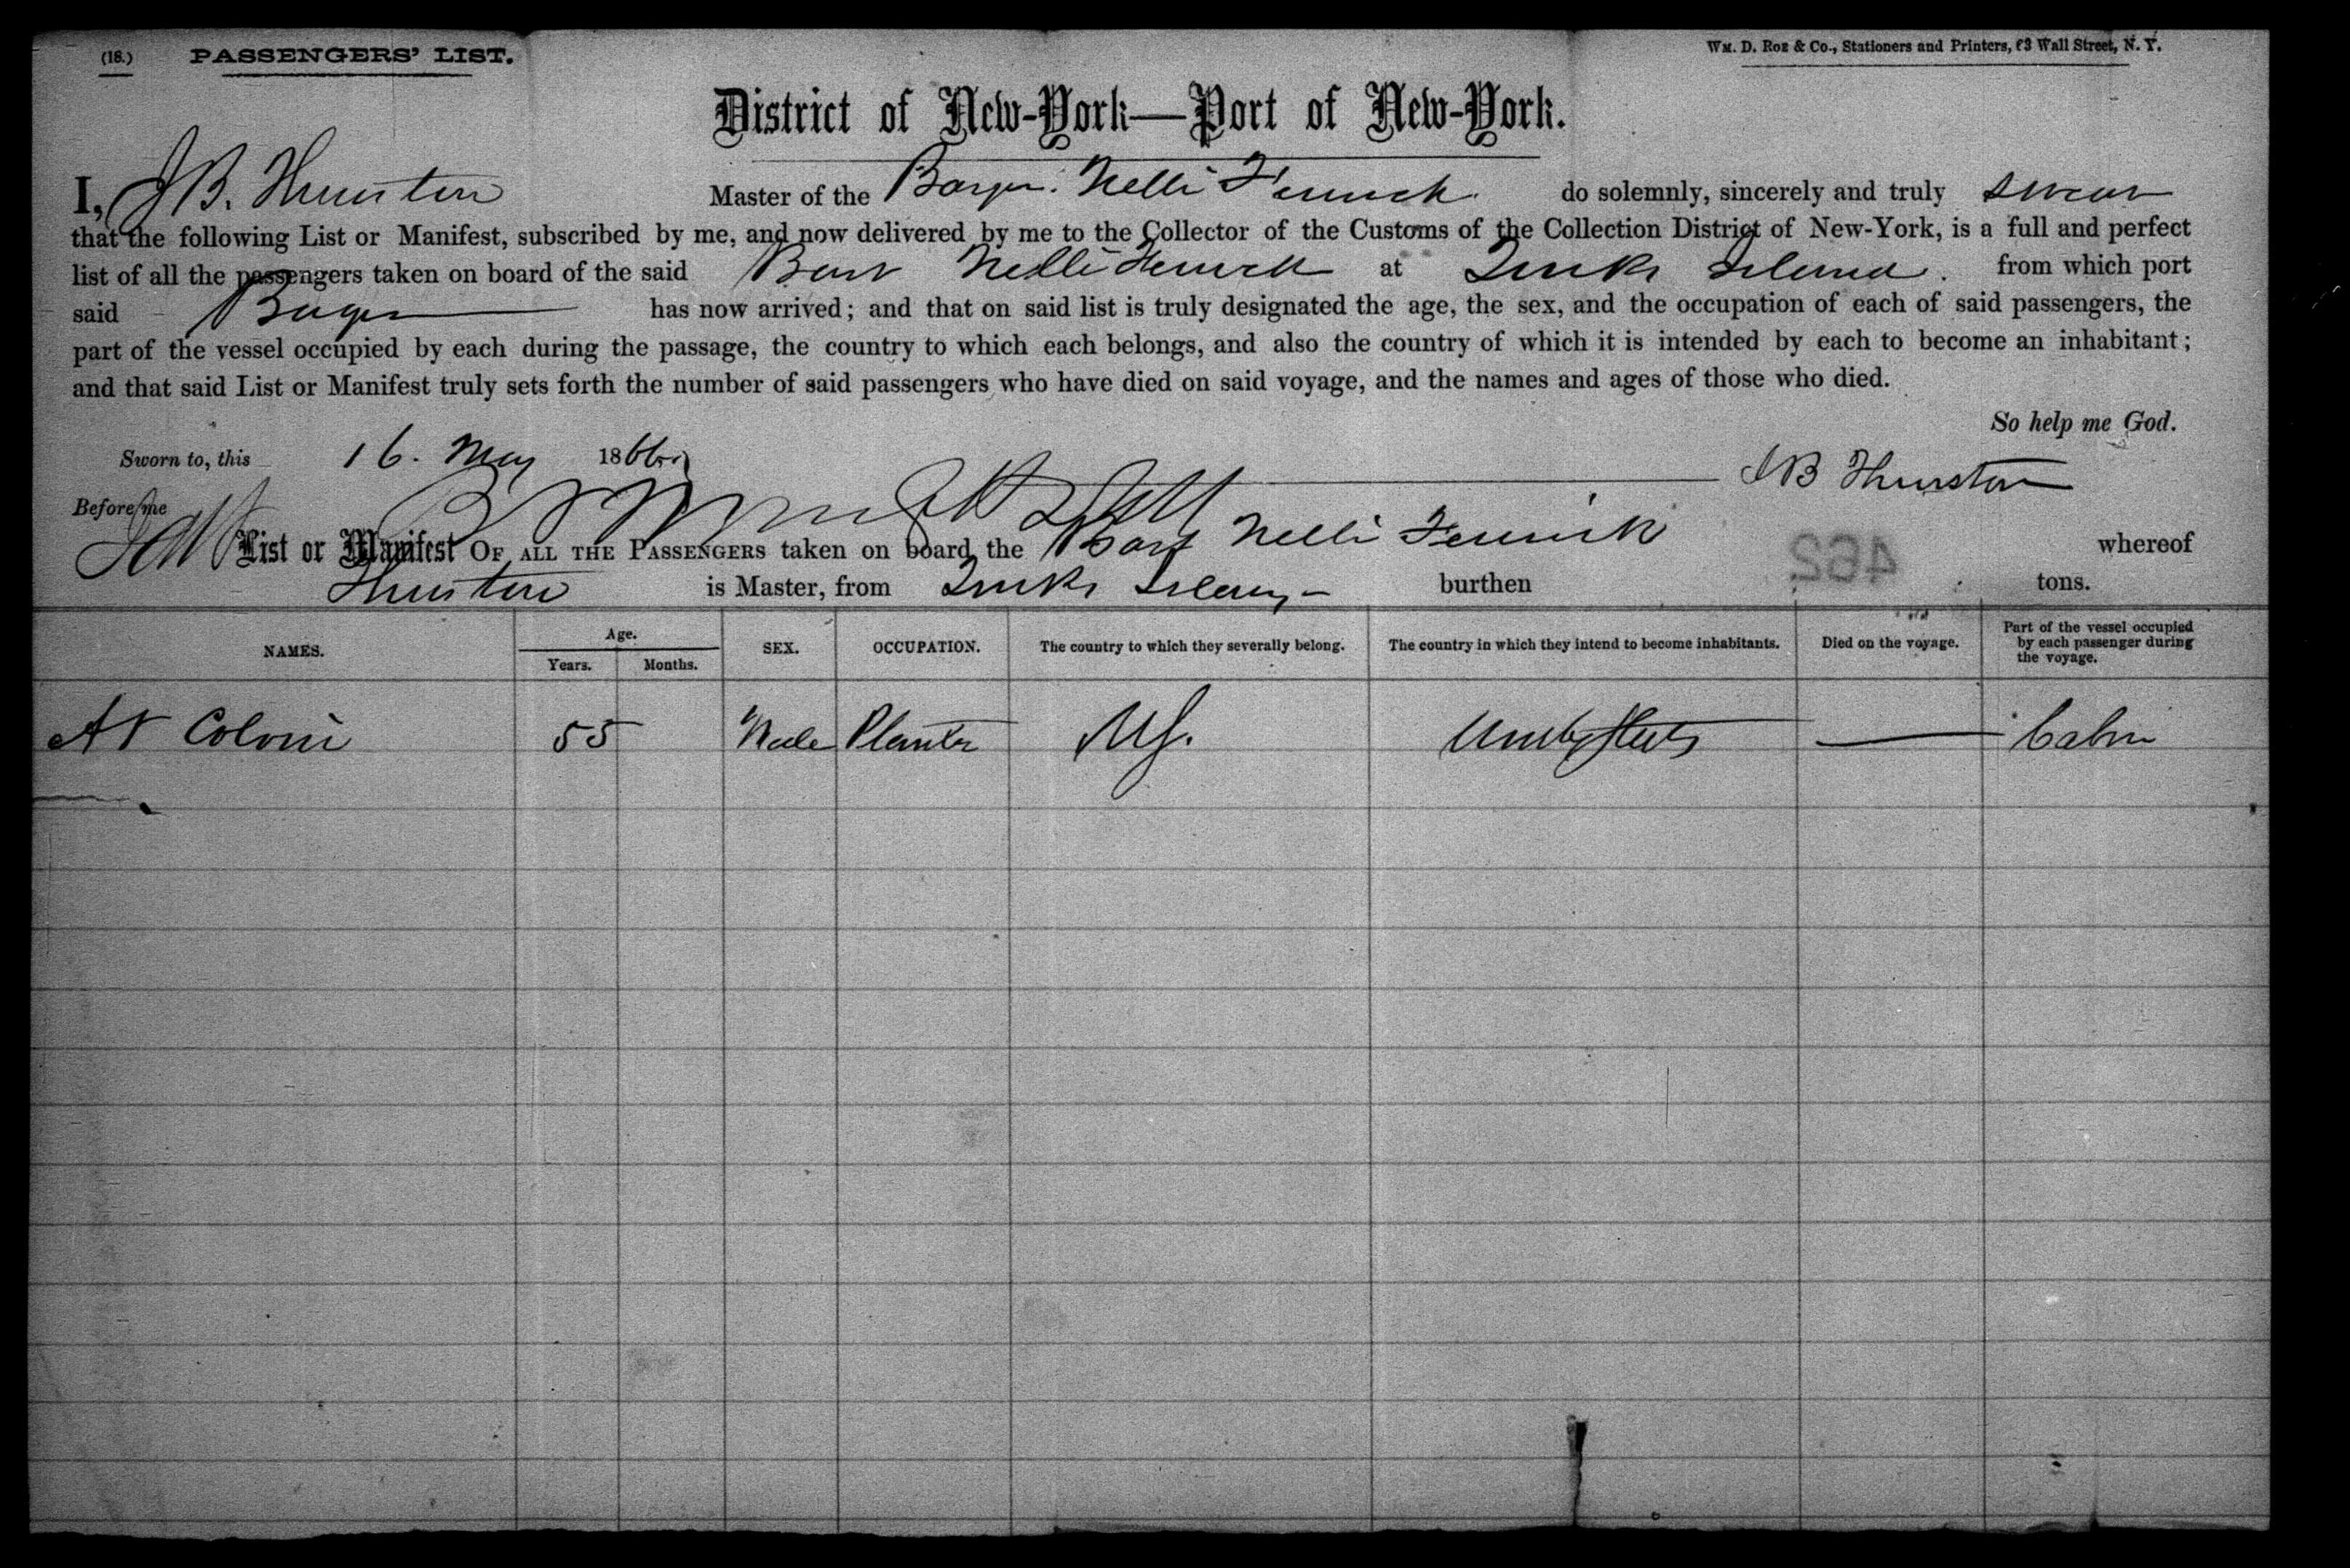 (18.) PASSENGERS' LIST.
Wm. D. Roe & Co., Stationers and Printers, 63 Wall Street, N. Y.
District of New-York—Port of New-York.
I, J B. Thurston Master of the Nelli Fenwick do solemnly, sincerely and truly swear
that the following List or Manifest, subscribed by me, and now delivered by me to the Collector of the Customs of the Collection District of New-York, is a full and perfect
list of all the passengers taken on board of the said Nelli Fenwick at Turks Island. from which port
said has now arrived; and that on said list is truly designated the age, the sex, and the occupation of each of said passengers, the
part of the vessel occupied by each during the passage, the country to which each belongs, and also the country of which it is intended by each to become an inhabitant;
and that said List or Manifest truly sets forth the number of said passengers who have died on said voyage, and the names and ages of those who died.
So help me God.
Sworn to, this 16. May 1866
J B Thurston
Before me
List or Manifest OF ALL THE PASSENGERS taken on board the Nelli Fenwick whereof
Thurston is Master, from Turks Island burthen tons.
462
NAMES. Age. Years. Months. SEX. OCCUPATION. The country to which they severally belong. The country in which they intend to become inhabitants. Died on the voyage. Part of the vessel occupied by each passenger during the voyage.
55 Male Planter Cabin